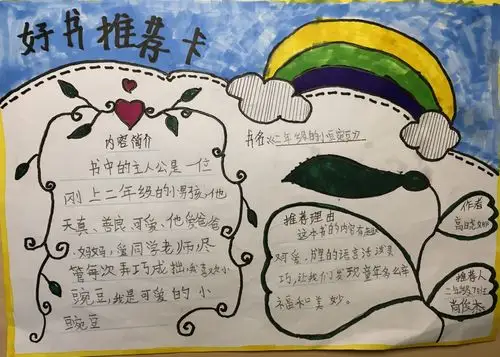 好书推荐卡
内容简介
书中的主人公是一位
刚上二年级的小男孩,他
天真、善良、可爱、他爱爸爸
、妈妈,爱同学老师,尽
管每次弄巧成拙,我喜欢小
豌豆,我是可爱的小
豌豆
书名《二年级的小豌豆》
推荐理由
这本书的内容有趣
可爱,的语言活泼灵
巧,让我们发现童年多么幸
福和美妙。
作者
推荐人
二年级
肖俊杰